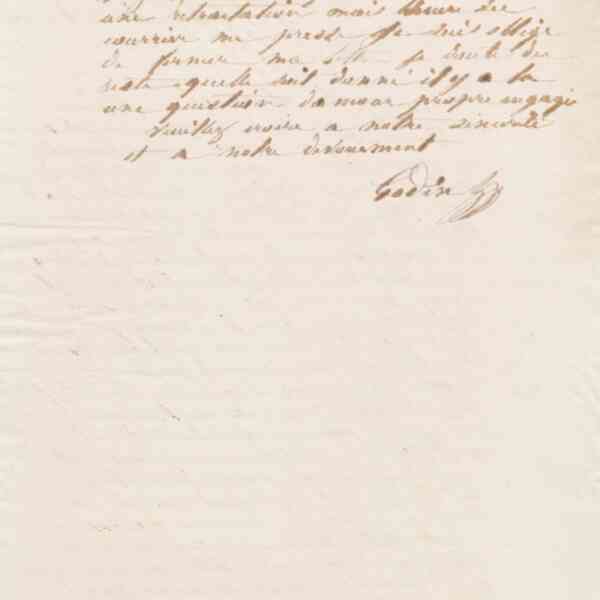 une rétractation mais l'heure du
courrier me presse je suis obligé
de fermer ma je doute du
reste quelle soit donné il y a la
une question damour propre engagé
Veuillez croire a notre sincerité
et a notre devouement
Godin